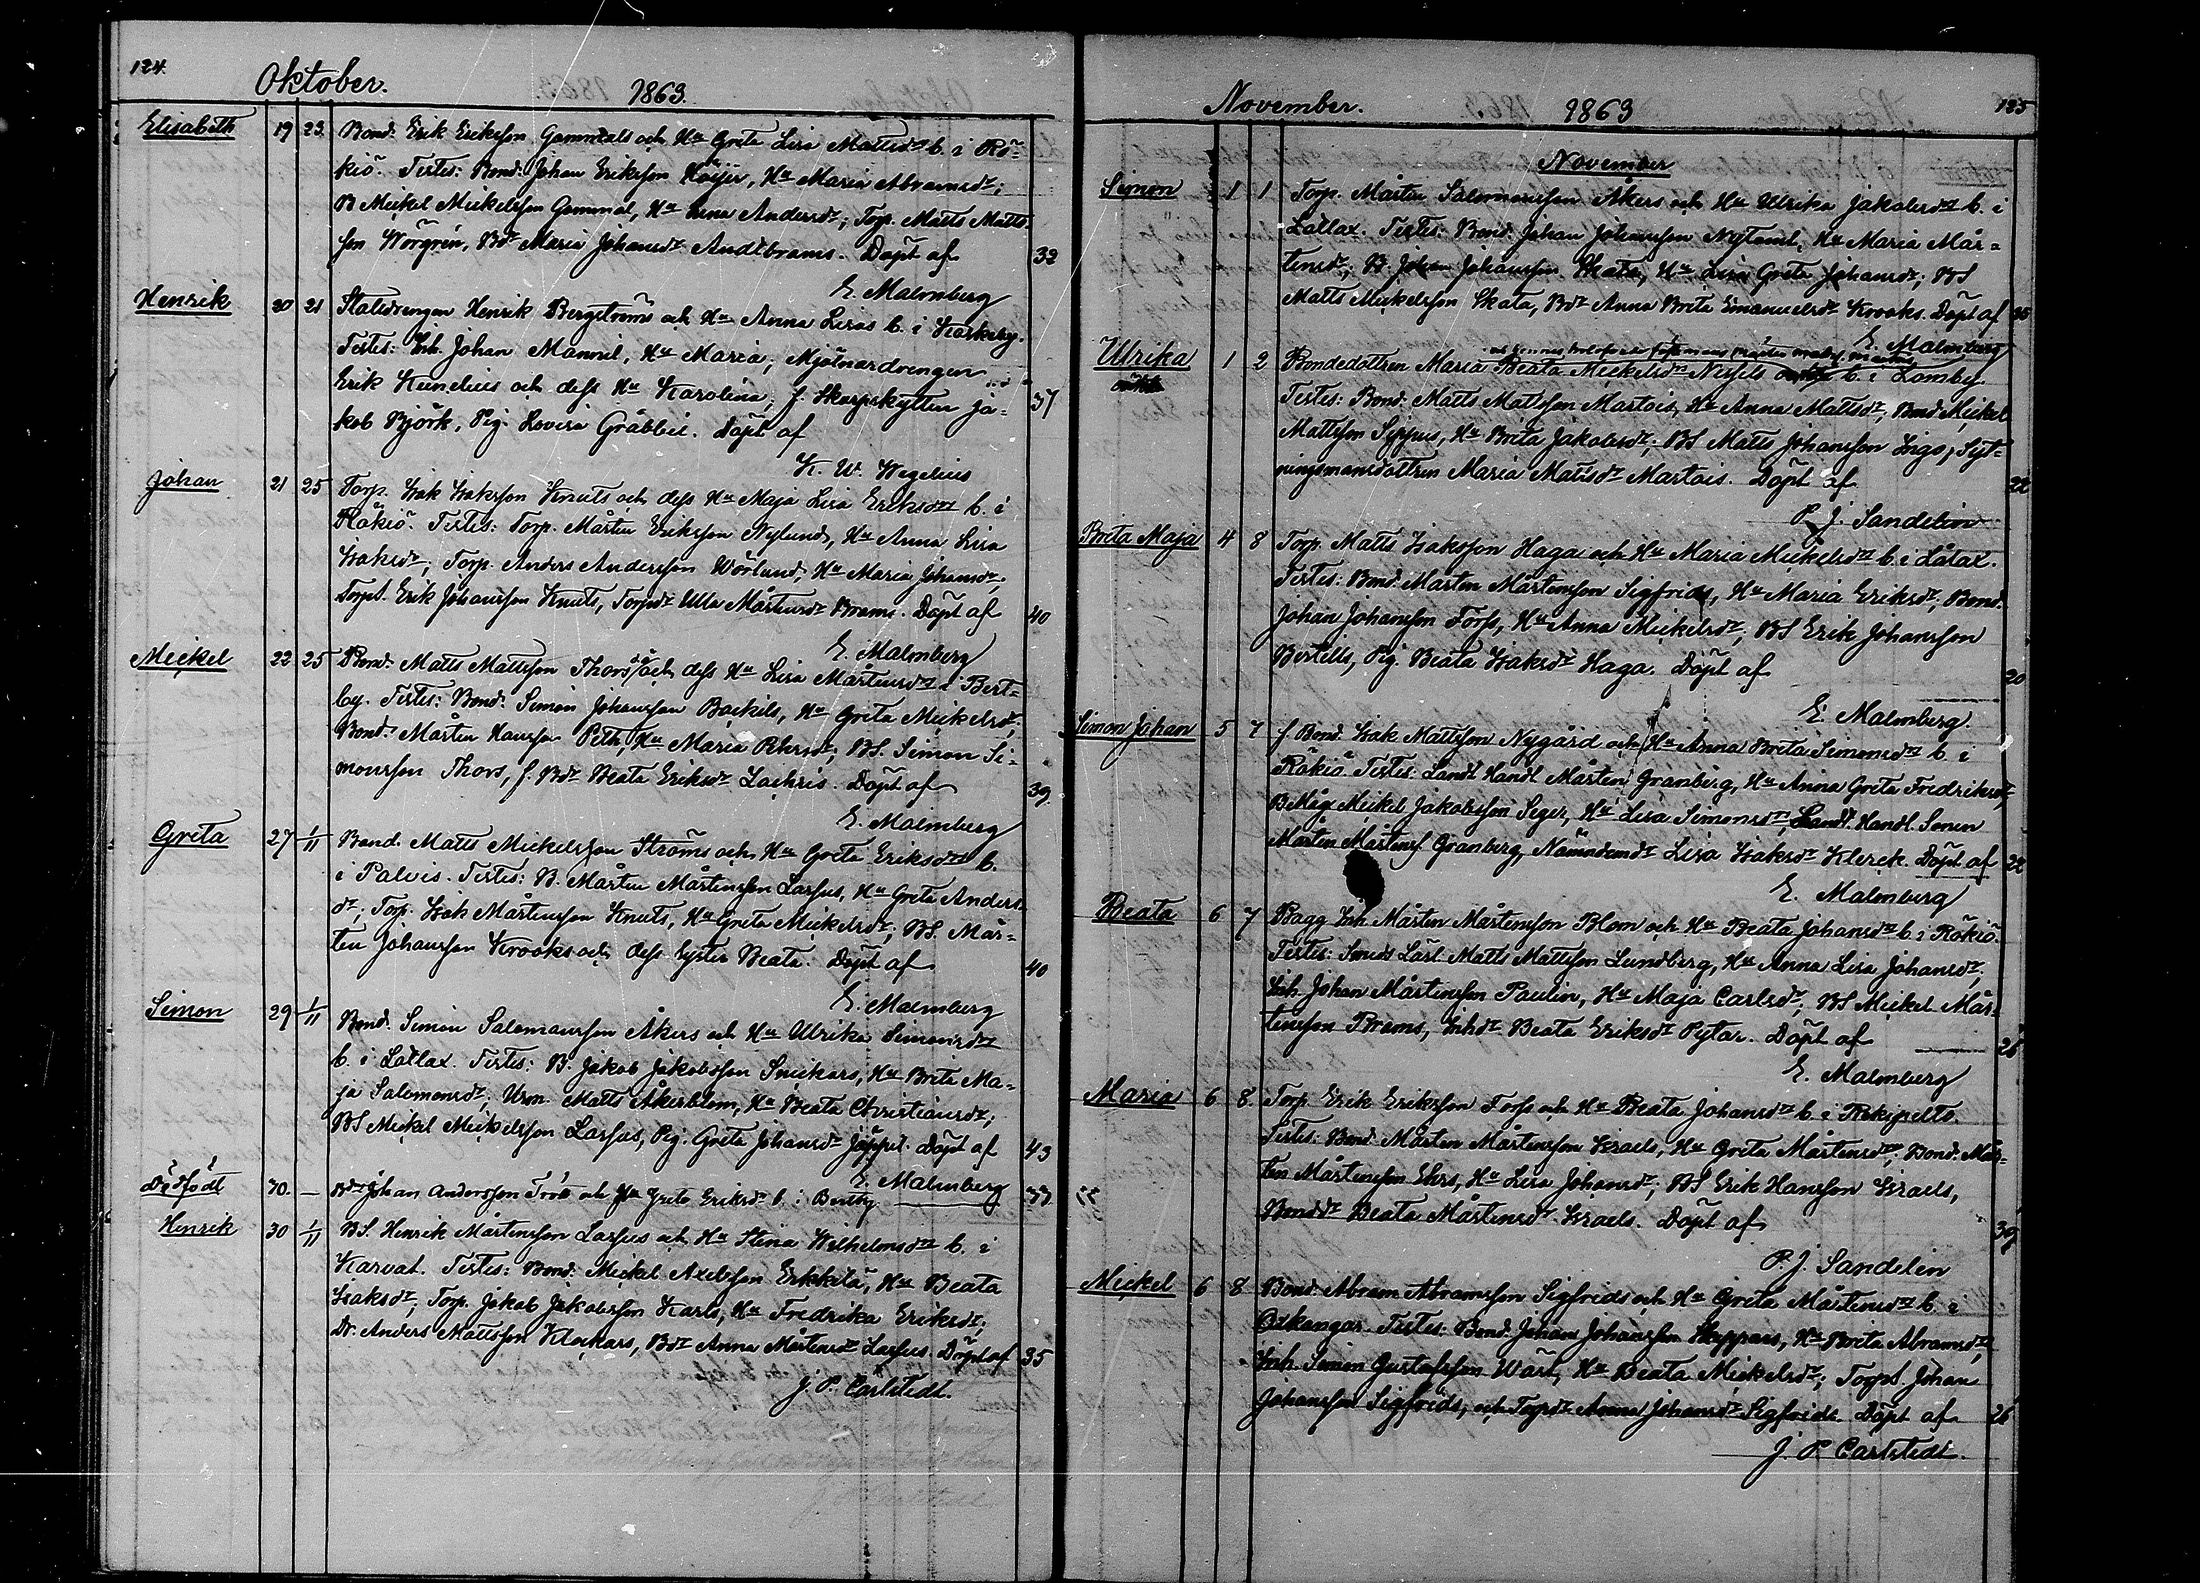 124.
Oktober. 1863.
Elisabeth 19 23. Bond. Erik Eriksson Gammals och Hu Greta Lisa Mattsdr b. i Rö-
kiö. Testes: Bond. Johan Eriksson Höijer, Hu Maria Abramsdr;
B Mickel Mickelsson Gammal, Hu Lena Andersdr; Torp. Matts Matts-
son Wörgren, Bdr Maria Johansdr Andtbrams. Döpt af 32
E. Malmberg
Henrik 20 21 Statsdrengen Henrik Bergströms och Hu Anna Lisas b. i Karkeby.
Testes: Inh. Johan Mannil, Hu Maria; Mjölnardrengen
Erik Kunelius och dess Hu Karolina; f. Skarpskytten Ja- 37
kob Björk, Pig. Lovisa Gräbbil. Döpt af
K. W. Wegelius
Johan 21 25 Torp. Isak Isaksson Knuts och dess Hu Maja Lisa Eriksdrs b. i
Rökiö. Testes: Torp. Mårten Eriksson Nylund, Hu Anna Lisa
Isaksdr; Torp. Anders Andersson Wörlund, Hu Maria Johansdr;
Torps. Erik Johansson Knuts, Torpdr Ulla Mårtensdr Brams. Döpt af 40
E. Malmberg
Mickel 22 25 Bond. Matts Mattsson Thors och dess Hu Lisa Mårtensdrs i Bert-
by. Testes: Bond. Simon Johansson Backils, Hu Greta Mickelsdr;
Bond. Mårten Hansson Peth, Hu Maria Ehrsdr; BS. Simon Si-
monsson Thors, f. Bdr Beata Eriksdr Lachris. Döpt af 39
E. Malmberg
Greta 27 1/11 Bond. Matts Mickelsson Ströms och Hu Greta Eriksdrs b.
i Palvis. Testes: B. Mårten Mårtensson Lassus, Hu Greta Anders-
dr; Torp. Isak Mårtensson Knuts, Hu Greta Mickelsdr; BS. Mår-
ten Johansson Krooks och dess Syster Beata. Döpt af 40
E. Malmberg
Simon 29 1/11 Bond. Simon Salomonsson Åkers och Hu Ulrika Simonsdrs
b. i Lållax. Testes: B. Jakob Jakobsson Snickars, Hu Brita Ma-
ja Salomonsdr; Urm. Matts Åkerblom, Hu Beata Christiansdr;
BS Mickel Mickelsson Lassus, Pig. Greta Johansdr Jåppil. Döpt af 43
E. Malmberg
Dödfödt 30. — Bdn Johan Andersson Tröts och Hu Greta Eriksdrs b. i Bertby 33
Henrik 30 1/11 BS. Henrik Mårtensson Lassus och Hu Stina Wilhelmsdrs b. i
Karvat. Testes: Bond. Mickel Axelsson Erkkilä, Hu Beata
Isaksdr; Torp. Jakob Jakobsson Karls, Hu Fredrika Eriksdr;
Dr. Anders Mattsson Klockars, Bdr Anna Mårtensdr Lassus. Döpt af 35
J. P. Carlstedt.
November. 1863 125
November
Simon 1 1 Torp. Mårten Salomonsson Åkers och Hu Ulrika Jakobsdrs b. i
Lållax. Testes: Bond. Johan Johansson Nytomt, Hu Maria Mår-
tensdr; B. Johan Johansson Skata, Hu Lisa Greta Johansdr; BS
Matts Mickelsson Skata, Bdr Anna Brita Emanuelsdr Krooks. Döpt af
E. Malmberg
Ulrika 1 2 Bondedottren Maria Beata Mickelsdrs b. i Lomby
Testes: Bond. Matts Mattsson Martois, Hu Anna Mattsdr; Bond Mickel
Mattsson Sippus, Hu Brita Jakobsdr; BS Matts Johansson Ligo; Syt-
ningsmansdottren Maria Mattsdr Martois. Döpt af 22
P. J. Sandelin
Brita Maja 4 8 Torp. Matts Isaksson Haga och Hu Maria Mickelsdrs b. i Lålax.
Testes: Bond. Mårten Mårtensson Sigfrids, Hu Maria Eriksdr; Bond.
Johan Johansson Forss, Hu Anna Mickelsdr; BS Erik Johansson
Bertills, Pig. Beata Isaksdr Haga. Döpt af 20
E. Malmberg.
Simon Johan 5 7 f. Bond. Isak Mattsson Nygård och Hu Anna Brita Simonsdrs b. i
Rökiö. Testes: Landt Handl Mårten Granberg, Hu Anna Greta Fredriksdr;
B Måg Mickel Jakobsson Seger, Hu Lisa Simonsdr; Landt. Handl. Sonen
Mårten Mårtenss. Granberg, Nämndemdr Lisa Isaksdr Klerck. Döpt af 22
E. Malmberg
Beata 6 7 Bagg Inh. Mårten Mårtensson Blom och Hu Beata Johansdrs b. i Rökiö.
Testes: Smeds Lärl. Matts Mattsson Lundberg, Hu Anna Lisa Johansdr;
Inh. Johan Mårtensson Paulin, Hu Maja Carlsdr; BS Mickel Mår-
tensson Brams, Inhdr Beata Eriksdr Pytar. Döpt af
E. Malmberg
Maria 6 8. Torp Erik Eriksson Forss och Hu Beata Johansdrs b. i Rekipelto.
Testes: Bond. Mårten Mårtensson Israels, Hu Greta Mårtensdr; Bond. Mår-
ten Mårtensson Ehrs, Hu Lisa Johansdr; BS Erik Hansson Israels,
Bonddr Beata Mårtensdr Israels. Döpt af 39
P. J. Sandelin
Mickel 6 8 Bond. Abram Abramsson Sigfrids och Hu Greta Mårtensdrs b. i
Oxkangar. Testes: Bond. Johan Johansson Skeppars, Hu Brita Abramsdr;
Inh. Simon Gustafsson Wärt, Hu Beata Mickelsdr; Torps. Johan
Johansson Sigfrids, och Torpdr Anna Johansdr Sigfrids. Döpt af 26
J. P. Carlstedt.